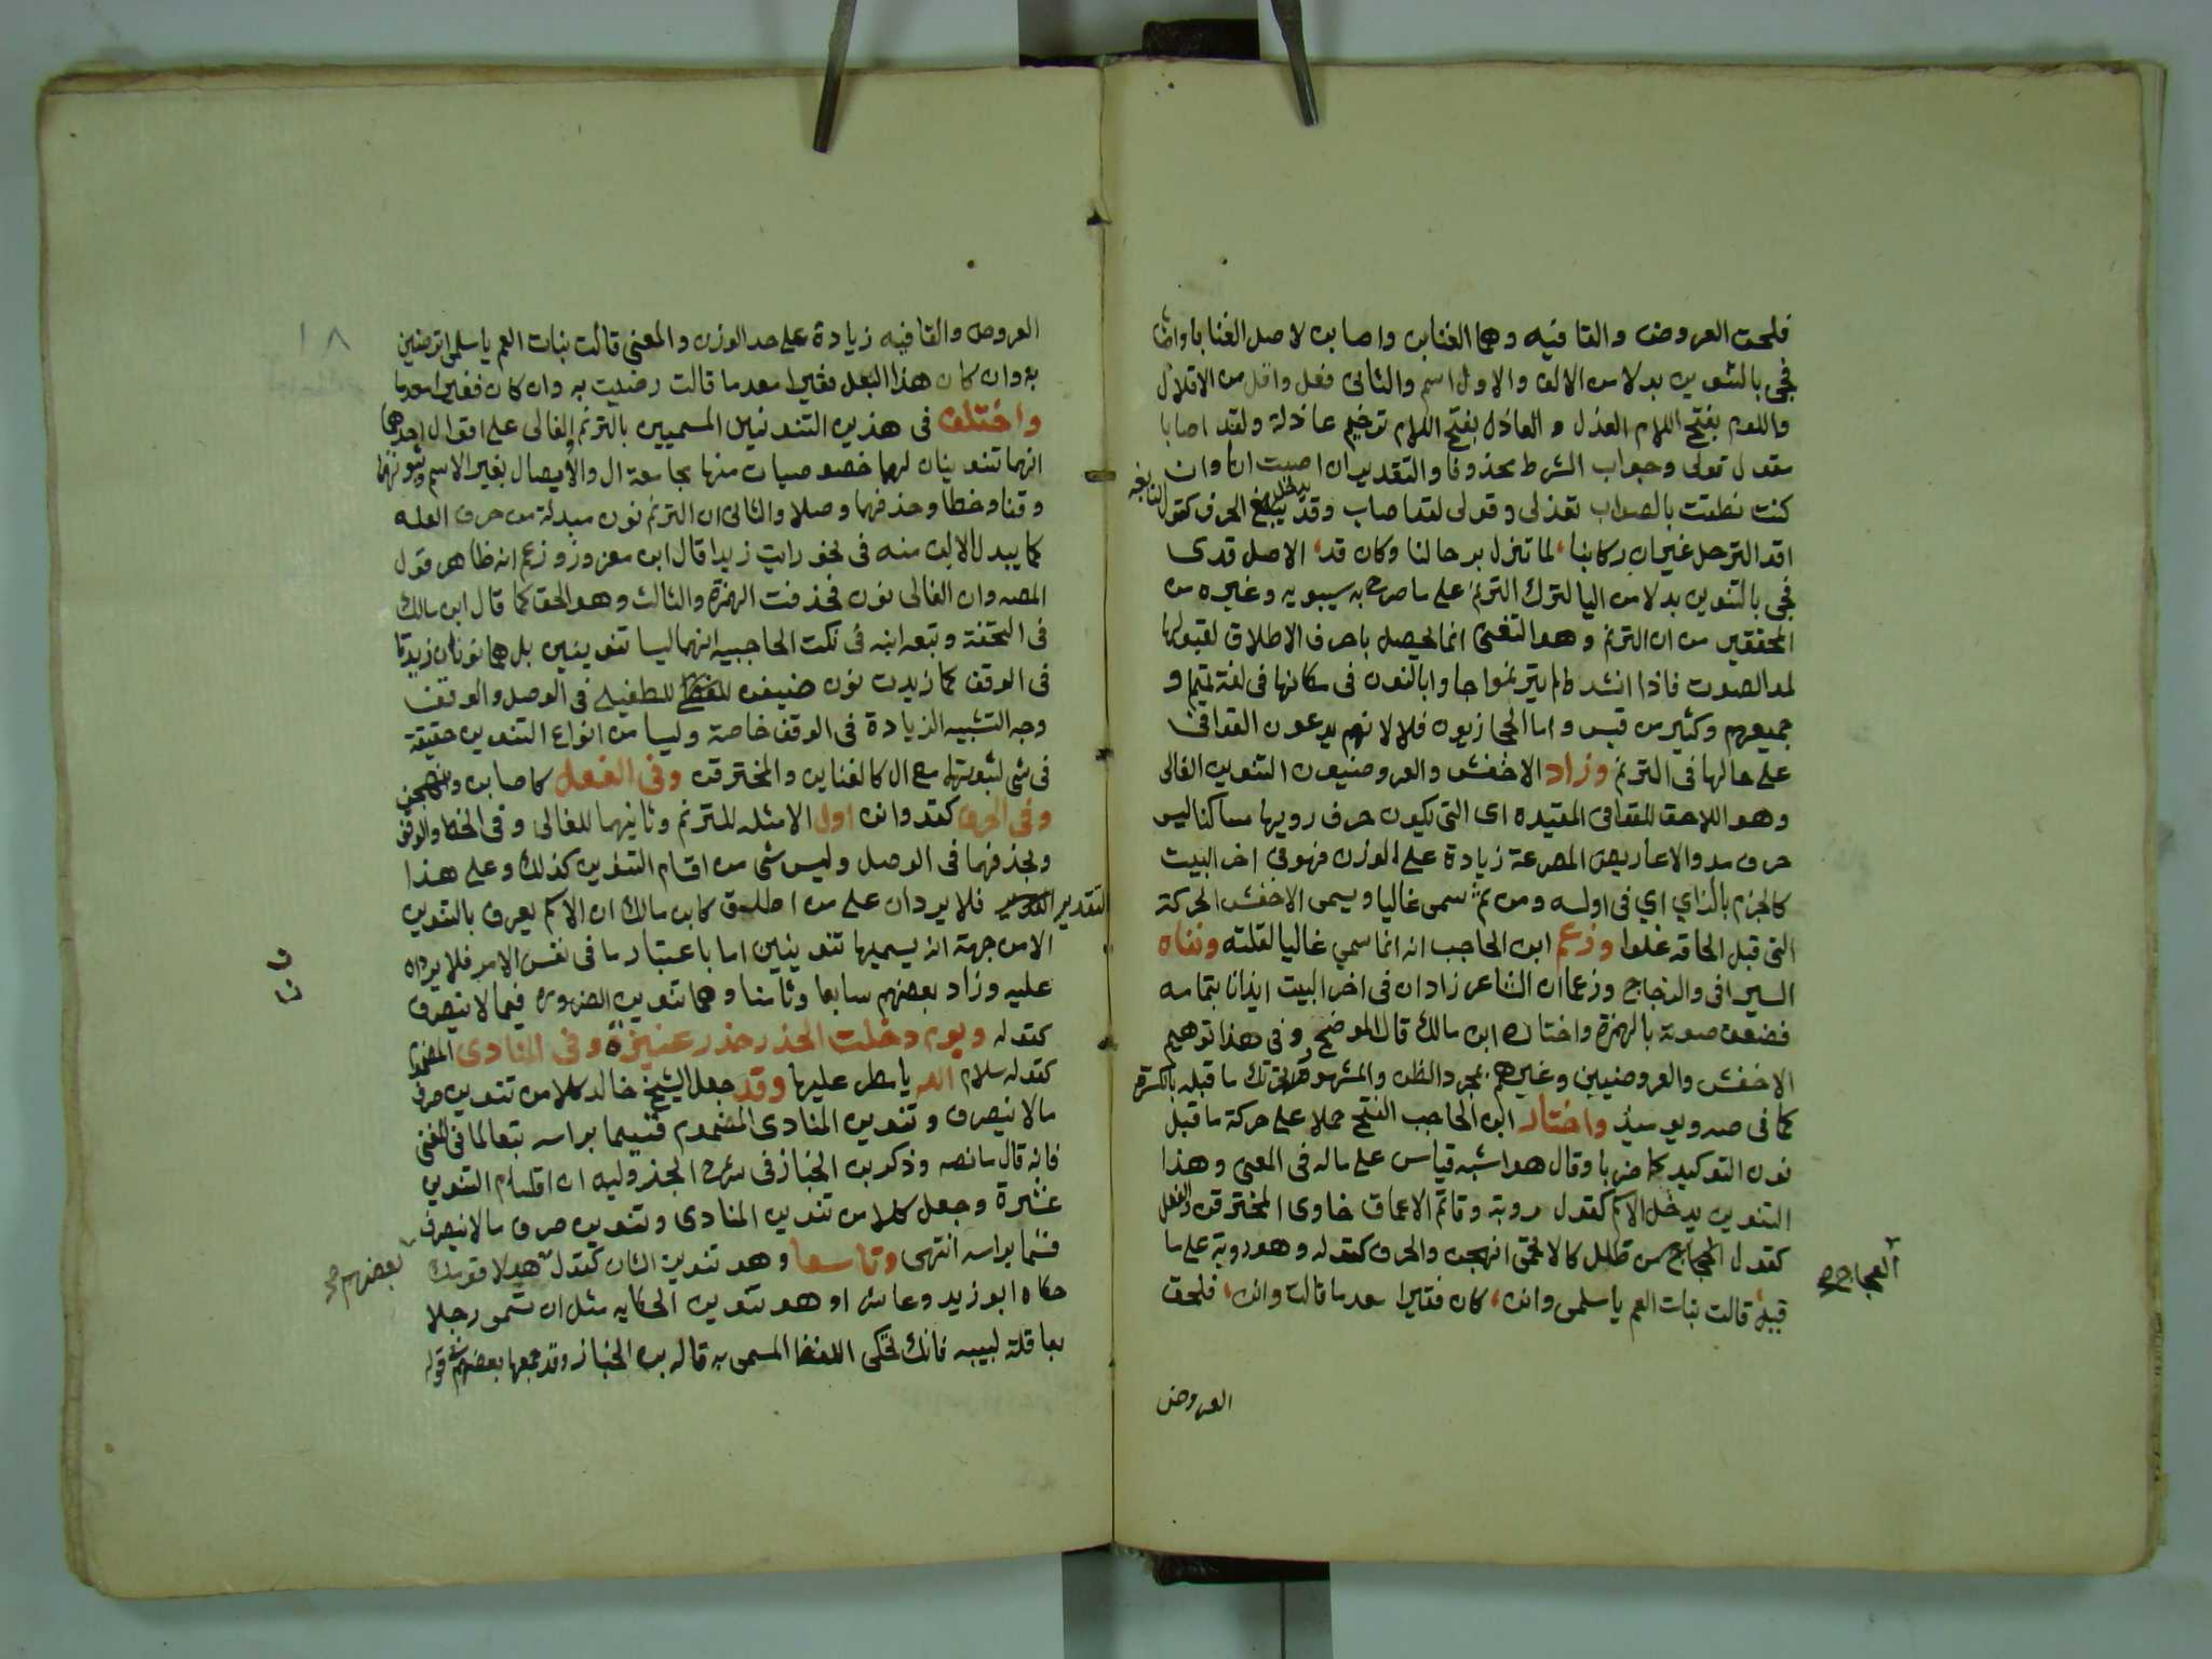 فلحق العروض والقافيه وهما العتابن واصابن لاصل العتابا واصابا
فجي بالتنوين بدلا من الالف والاول اسم والثانى فعل واقل من الاقلال
واللوم بفتح اللام العذل والعاذل بفتح اللام ترخيم عاذلة ولقد اصابا
مقول قولى وجواب الشرط محذوفا والتقدير ان اصبت انا وان
كنت نطقت بالصواب تعذلى وقولى لقد اصاب وقد يدخل الحرف كقول النابغه
افد الترحل غير ان ركابنا لما تزل برحالنا وكان قد الاصل قدى
فجي بالتنوين بدلا من اليا لترك الترنم على ما صرح به سيبويه وغيره من
المحققين من ان الترنم وهو التغنى انما يحصل باحرف الاطلاق لقبولها
لمد الصوت فاذا انشدوا ولم يترنموا جاوا بالنون فى مكانها فى لغة تميم و
جميعهم وكثير من قيس واما الحجازيون فلا لانهم يدعون القوافى
على حالها فى الترنم وزاد الاخفش والعروضيون التنوين الغالى
وهو اللاحق للقوافى المقيده اى التى يكون حرف رويها ساكنا ليس
حرف مد والاعاريض المصرعة زيادة على الوزن فهو فى اخر البيت
كالخزم بالزاي اي فى اوله ومن ثم سمى غاليا ويسمى الاخفش الحركة
التى قبل الحاقه غلوا وزعم ابن الحاجب انه انما سمي غاليا لقلته ونفاه
السيرافى والزجاج وزعما ان الشاعر زاد ان فى اخر البيت ايذانا بتمامه
فضعف صوته بالهمزة واختاره ابن مالك قال الموضح وفى هذا توهيم
الاخفش والعروضيين وغيرهم بمجرد الظن والمشهور تحريك ما قبله بالكسرة
كما فى صه ويوميذ واختار ابن الحاجب الفتح حملا على حركة ما قبل
نون التوكيد كاضربا وقال هو اشبه قياس على ماله فى المعنى وهذا
التنوين يدخل الاسم كقول روبة وقاتم الاعماق خاوى المخترقن والفعل
كقول العجاج من طلل كالاتحمى انهجن والحرف كقوله وهو روبة على ما
قبله قالت بنات العم يا سلمى وانن كان فقيرا معدما قالت وانن فلحق
العجاج صح
العروض
١٨
العروض والقافيه زيادة على حد الوزن والمعنى قالت بنات العم يا سلمى اترضين
به وان كان هذا البعل فقيرا معدما قالت رضيت به وان كان فقيرا معدما
واختلف فى هذين التنوينين المسميين بالترنم والغالى على اقوال احدها
انهما تنوينان لهما خصوصيات منها مجامعة ال والايصال بغير الاسم وثبوتهما
وقفا وخطا وحذفهما وصلا والثانى ان الترنم نون مبدلة من حرف العله
كما يبدل الالف منه فى نحو رايت زيدا قال ابن معزوز وزعم انه ظاهر قول
المصه وان الغالى نون فحذفت الهمزة والثالث وهو الحق كما قال ابن مالك
فى التحفة وتبعه ابنه فى نكت الحاجبيه انهما ليسا تنوينين بل هما نونان زيدتا
فى الوقف كما زيدت نون ضيفن للطفيلى فى الوصل والوقف
وجه التشبيه الزيادة فى الوقف خاصة وليسا من انواع التنوين حقيقة
فى شى لثبوتهما مع ال كالعتابن والمخترقن وفى الفعل كاصابن وانهجن
وفى الحرف كقد وانن اول الامثله للمترنم وثانيهما للغالى وفى الخط والوقف
وبحذفهما فى الوصل وليس شى من اقسام التنوين كذلك وعلى هذا
التقدير فلا يردان على من اطلق كابن مالك ان الاسم يعرف بالتنوين
الا من جهة انه يسميها تنوينين اما باعتبار ما فى نفس الامر فلا يردان
عليه وزاد بعضهم سابعا وثامنا وهما تنوين الضروره فيما لا ينصرف
كقوله ويوم دخلت الخدر خدر عنيزة وفى المنادى المضموم
كقوله سلام الله يا مطر عليها وقد جعل الشيخ خالد كلا من تنوين صرف
مالا ينصرف وتنوين المنادى المضموم قسيما براسه تبعا لما فى المغنى
فانه قال ما نصه وذكر بن الخباز فى شرح الجزوليه ان اقسام التنوين
عشرة وجعل كلا من تنوين المنادى وتنوين صرف مالا ينصرف
قسما براسه انتهى وتاسعا وهو تنوين الشاذ كقول هولا قومك
حكاه ابو زيد وعاشرا وهو تنوين الحكايه مثل ان تسمى رجلا
بعاقلة لبيبه فانك تحكى اللفظ المسمى به قاله بن الخباز وقد جمعها بعضهم فى قوله
بعضهم صح